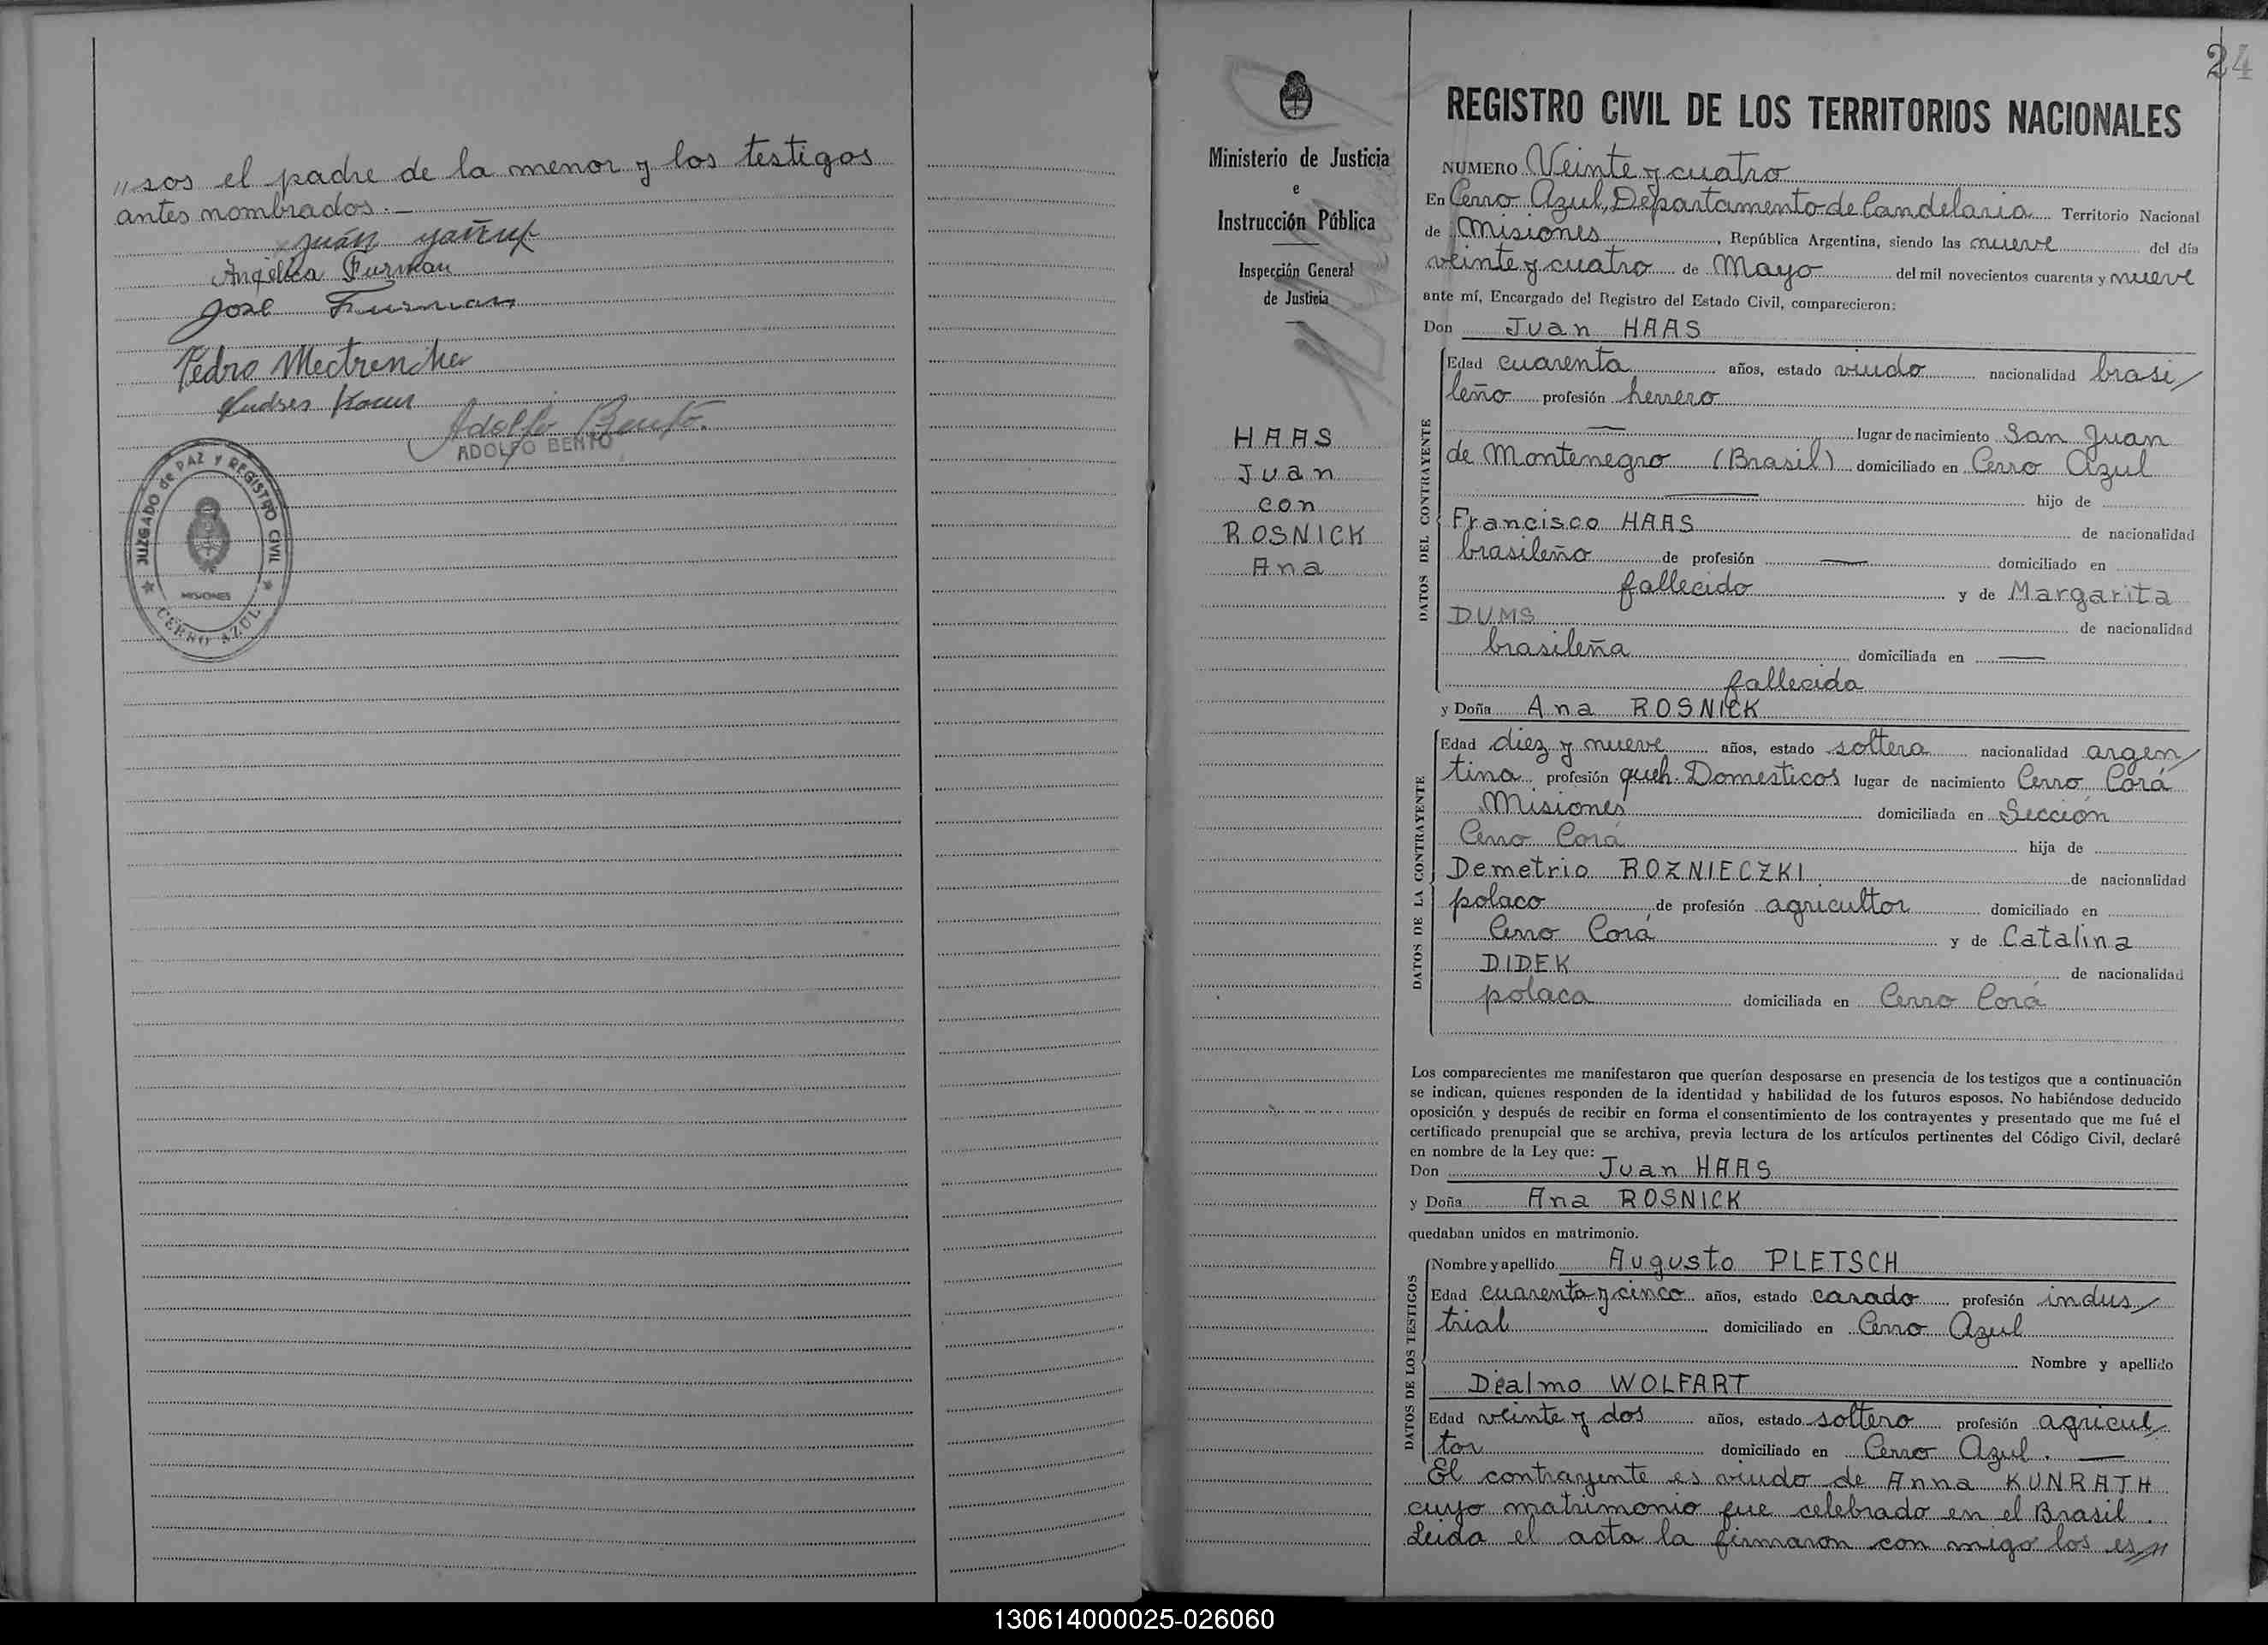 "sos el padre de la menor y los testigos
antes nombrados.—
Juán
Angélica Furman
José Furman
Pedro
ADOLFO BENTO
Adolfo Bento.
JUZGADO de PAZ Y REGISTRO CIVIL
MISIONES
CERRO AZUL
24
Ministerio de Justicia
e
Instrucción Pública
Inspección General
de Justicia
HAAS
Juan
con
ROSNICK
Ana
REGISTRO CIVIL DE LOS TERRITORIOS NACIONALES
NUMERO Veinte y cuatro
En Cerro Azul, Departamento de Candelaria Territorio Nacional
de Misiones, República Argentina, siendo las nueve del día
veinte y cuatro de Mayo del mil novecientos cuarenta y nueve
ante mí, Encargado del Registro del Estado Civil, comparecieron:
Don Juan HAAS
DATOS DEL CONTRAYENTE
Edad cuarenta años, estado viudo nacionalidad brasi/
leño profesión herrero
— lugar de nacimiento San Juan
de Montenegro (Brasil) domiciliado en Cerro Azul
— hijo de
Francisco HAAS de nacionalidad
brasileño de profesión — domiciliado en
fallecido y de Margarita
DUMS de nacionalidad
brasileña domiciliada en —
fallecida
y Doña Ana ROSNICK
DATOS DE LA CONTRAYENTE
Edad diez y nueve años, estado soltera nacionalidad argen/
tina profesión queh. Domesticos lugar de nacimiento Cerro Corá
Misiones domiciliada en Sección
Cerro Corá hija de
Demetrio ROZNIECZKI de nacionalidad
polaco de profesión agricultor domiciliado en
Cerro Corá y de Catalina
DIDEK de nacionalidad
polaca domiciliada en Cerro Corá
Los comparecientes me manifestaron que querían desposarse en presencia de los testigos que a continuación
se indican, quienes responden de la identidad y habilidad de los futuros esposos. No habiéndose deducido
oposición y después de recibir en forma el consentimiento de los contrayentes y presentado que me fué el
certificado prenupcial que se archiva, previa lectura de los artículos pertinentes del Código Civil, declaré
en nombre de la Ley que:
Don Juan HAAS
y Doña Ana ROSNICK
quedaban unidos en matrimonio.
DATOS DE LOS TESTIGOS
Nombre y apellido Augusto PLETSCH
Edad cuarenta y cinco años, estado casado profesión indus/
trial domiciliado en Cerro Azul
Nombre y apellido
Dialmo WOLFART
Edad veinte y dos años, estado soltero profesión agricul/
tor domiciliado en Cerro Azul. —
El contrayente es viudo de Anna KUNRATH
cuyo matrimonio fue celebrado en el Brasil.
Leida el acta la firmaron con migo los es//
130614000025-026060